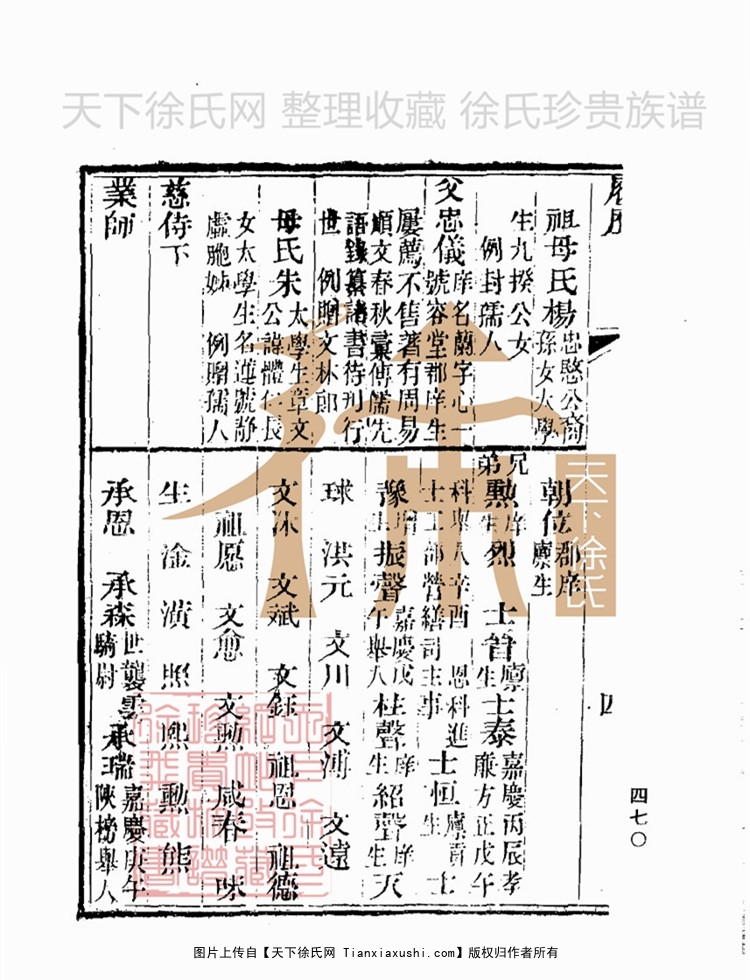 天下徐氏网 整理收藏 徐氏珍贵族谱
履历
祖母氏楊 忠愍公裔孫女太學
生九揆公女
例封孺人
父忠儀 庠名蘭字心一號容堂郡庠生
屢薦不售著有周易
順文春秋彙傳儒先
語錄纂諸書待刊行
世 例贈文林郎
母氏朱 太學生章文公諱體仁長
女太學生名蓮號靜
虛胞姊 例贈孺人
慈侍下
業師
朝位 郡庠廩生
兄弟
勲 庠生 烈 士首 廩生 士泰 嘉慶丙辰孝廉方正戊午
科舉人辛酉 恩科進
士工部營繕司主事 士恒 廩貢生 士
豫 增生 振聲 嘉慶戊午舉人 桂聲 庠生 紹聲 庠生 天
球 洪元 文川 文溥 文遠
文沐 文斌 文鈺 祖恩 祖德
祖愿 文愈 文勲 咸春 咏
生 淦 潢 照 熙 勲 熊
承恩 承森 世襲雲騎尉 承瑞 嘉慶庚午陝榜舉人
四
四七〇
天下徐氏
图片上传自【天下徐氏网 Tianxiaxushi.com】版权归作者所有